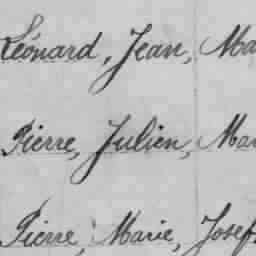 Léonard, Jean, Ma
Pierre, Julien, Mar
Pierre, Marie, Josef